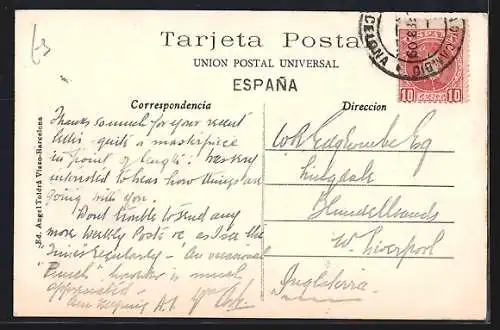 Tarjeta Postal
UNION POSTAL UNIVERSAL
ESPAÑA
Correspondencia
Thanks so much for your recent
letter - quite a masterpiece
in point of length! Was very
interested to hear how things are
going with you.
Dont trouble to send any
more Weekly Posts as I see the
"Times" regularly - An occasional
"Punch" however is much
appreciated -
Direccion
W R Edgcombe Esq
Blundellsands
W. Liverpool
Inglaterra
Ed. Angel Toldrá Viazo-Barcelona
CELONA
10 10